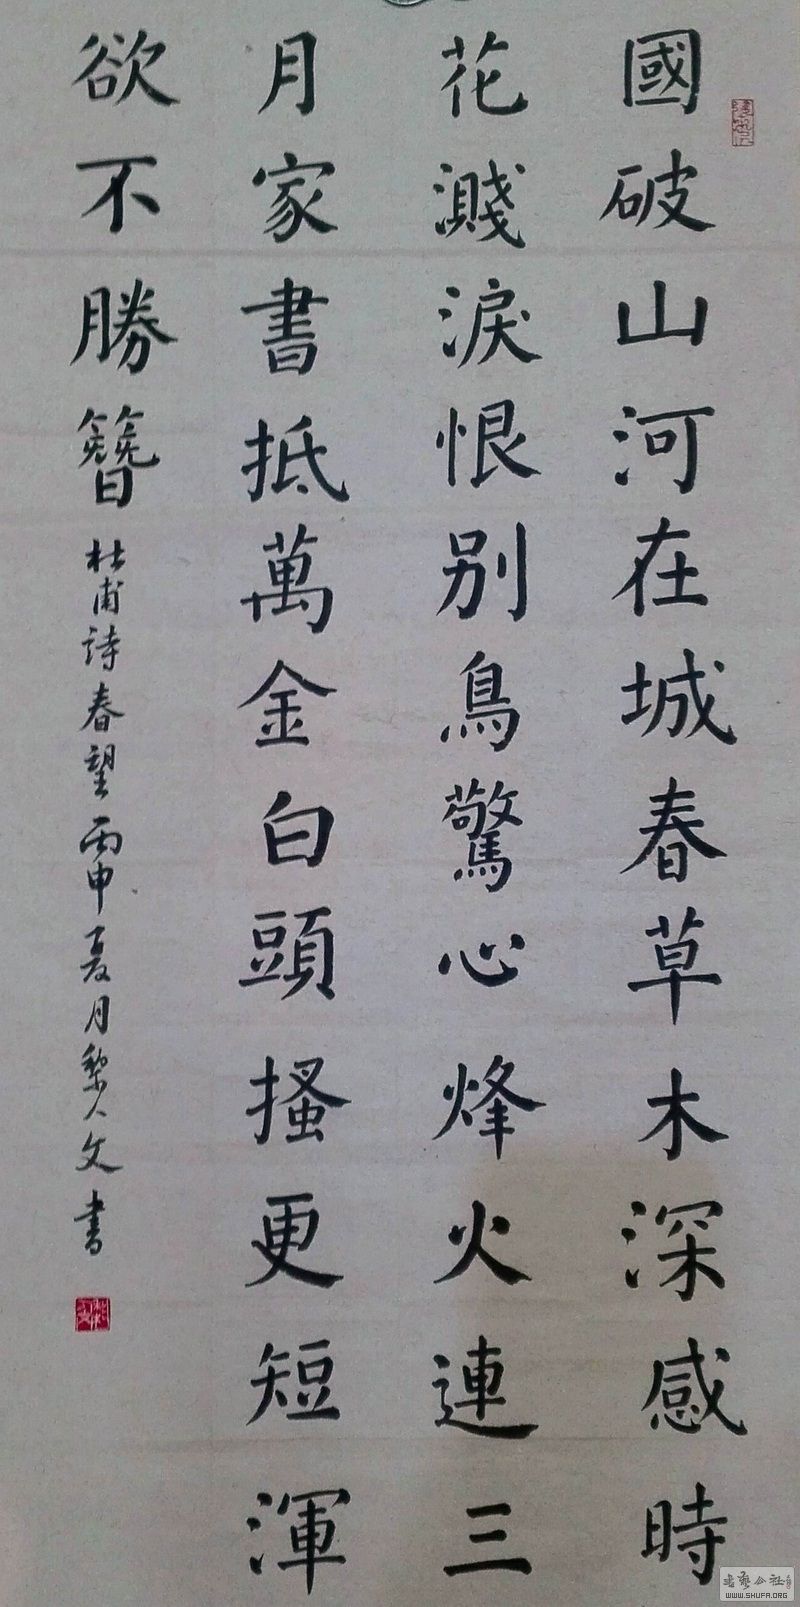 國破山河在城春草木深感時
花濺淚恨别鳥驚心烽火連三
月家書抵萬金白頭搔更短渾
欲不勝簪
杜甫詩春望丙申夏月黎人文書
WWW.SHUFA.ORG